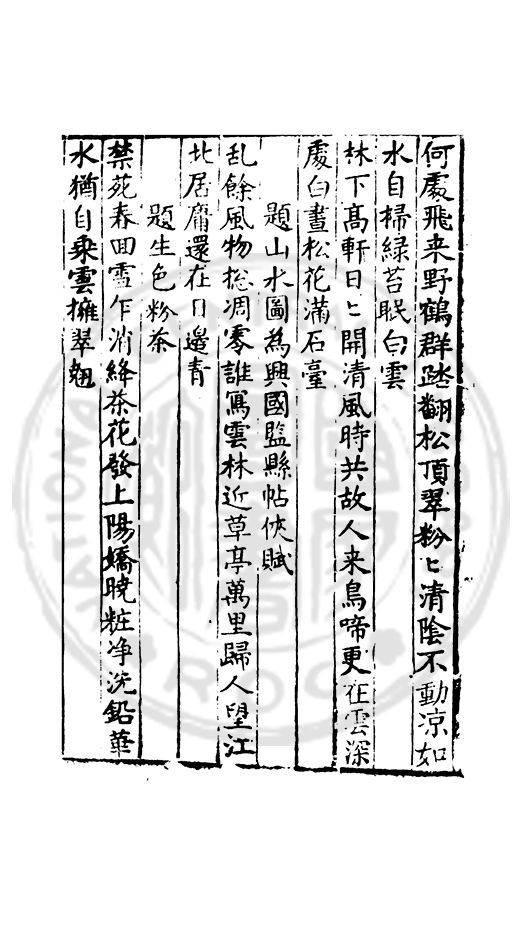 何處飛来野鶴群踏翻松頂翠粉〻清陰不動凉如
水自掃緑苔眠白雲
林下髙軒日〻開清風時共故人来鳥啼更在雲深
處白晝松花滿石臺
題山水圖為興國監縣帖侠賦
乱餘風物捴凋零誰寫雲林近草亭萬里歸人望江
北居庸還在日邊青
題生色粉茶
禁苑春回雪乍消絳茶花發上陽嬌曉粧净洗鉛華
水猶自乗雲擁翠翹